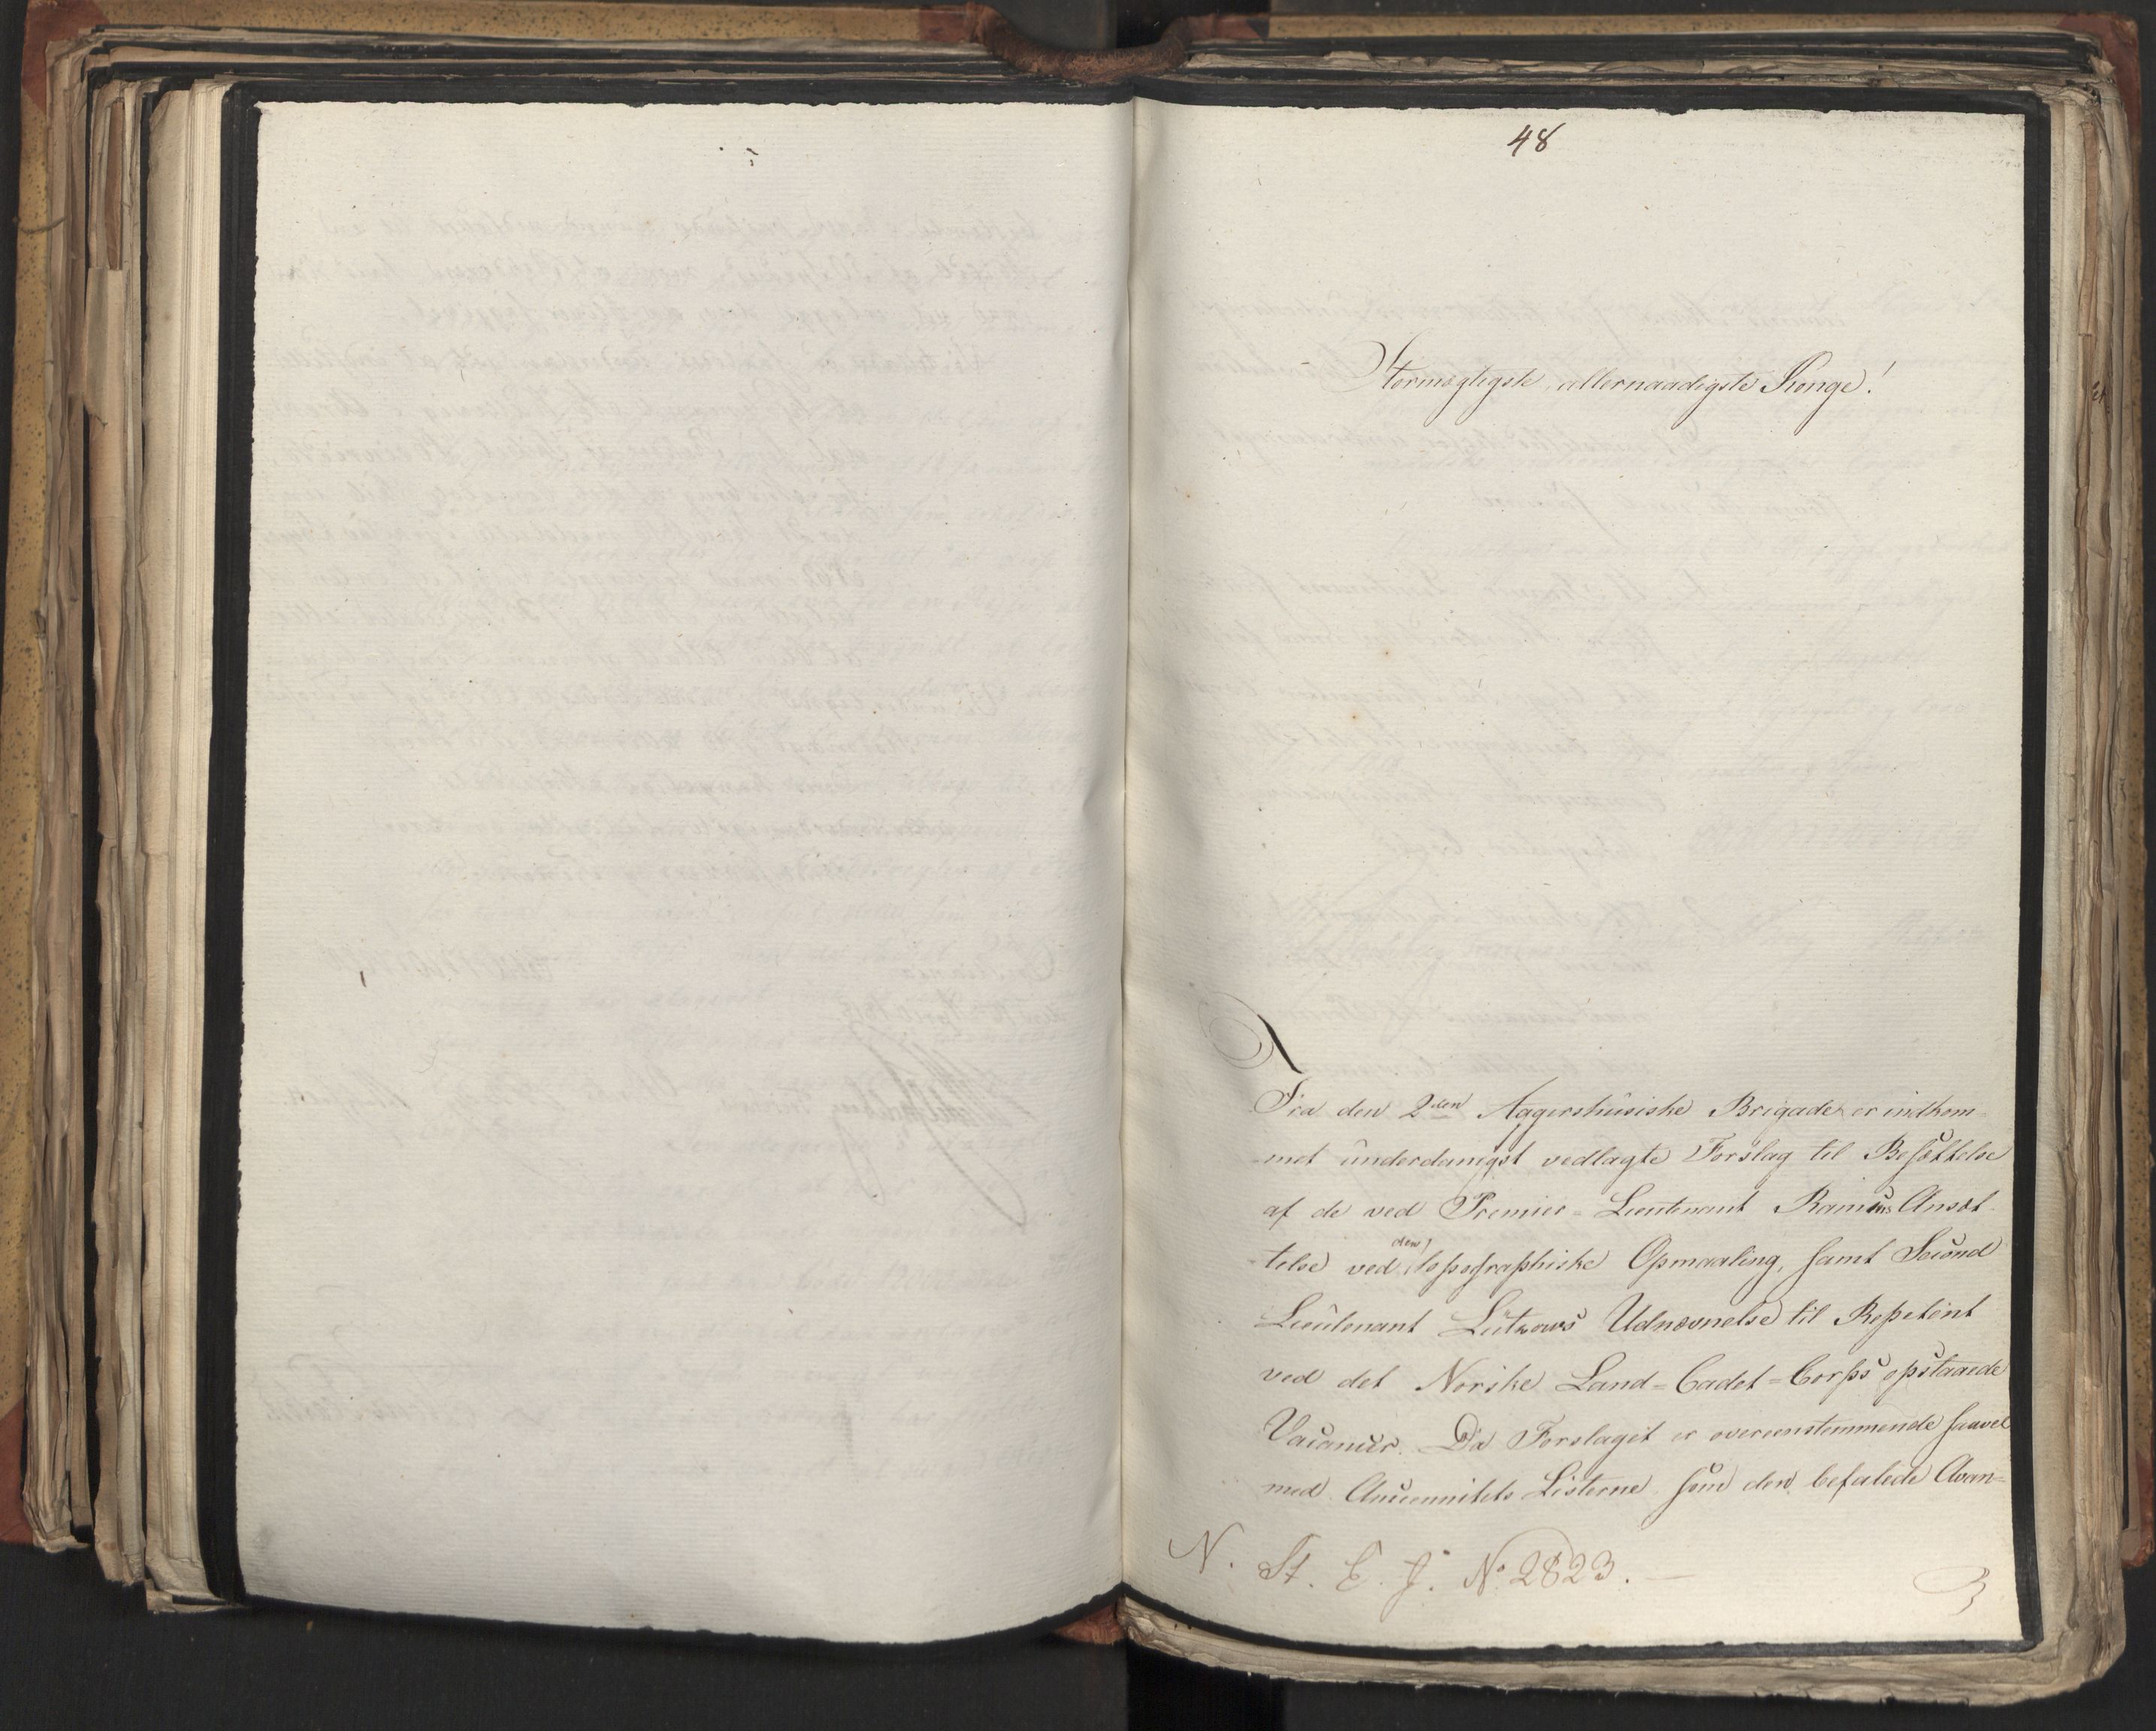 48
Stormægtigste, allernaadigste Konge!
Fra den 2den Aggershusiske Brigade er indkom-
met underdanigst vedlagte Forslag til Besættelse
af de ved Premier=Lieutenant Ramms Ansæt-
telse ved den topographiske Opmaaling, samt Second
Lieutenant Lützows Udnævnelse til Repetent
ved det Norske Land=Cadet=Corps opstaaede
Vacancer. Da Forslaget er overeenstemmende saavel
med Anciennitets Listerne som den befalede Avan=
N. St. E. J. No 2823.